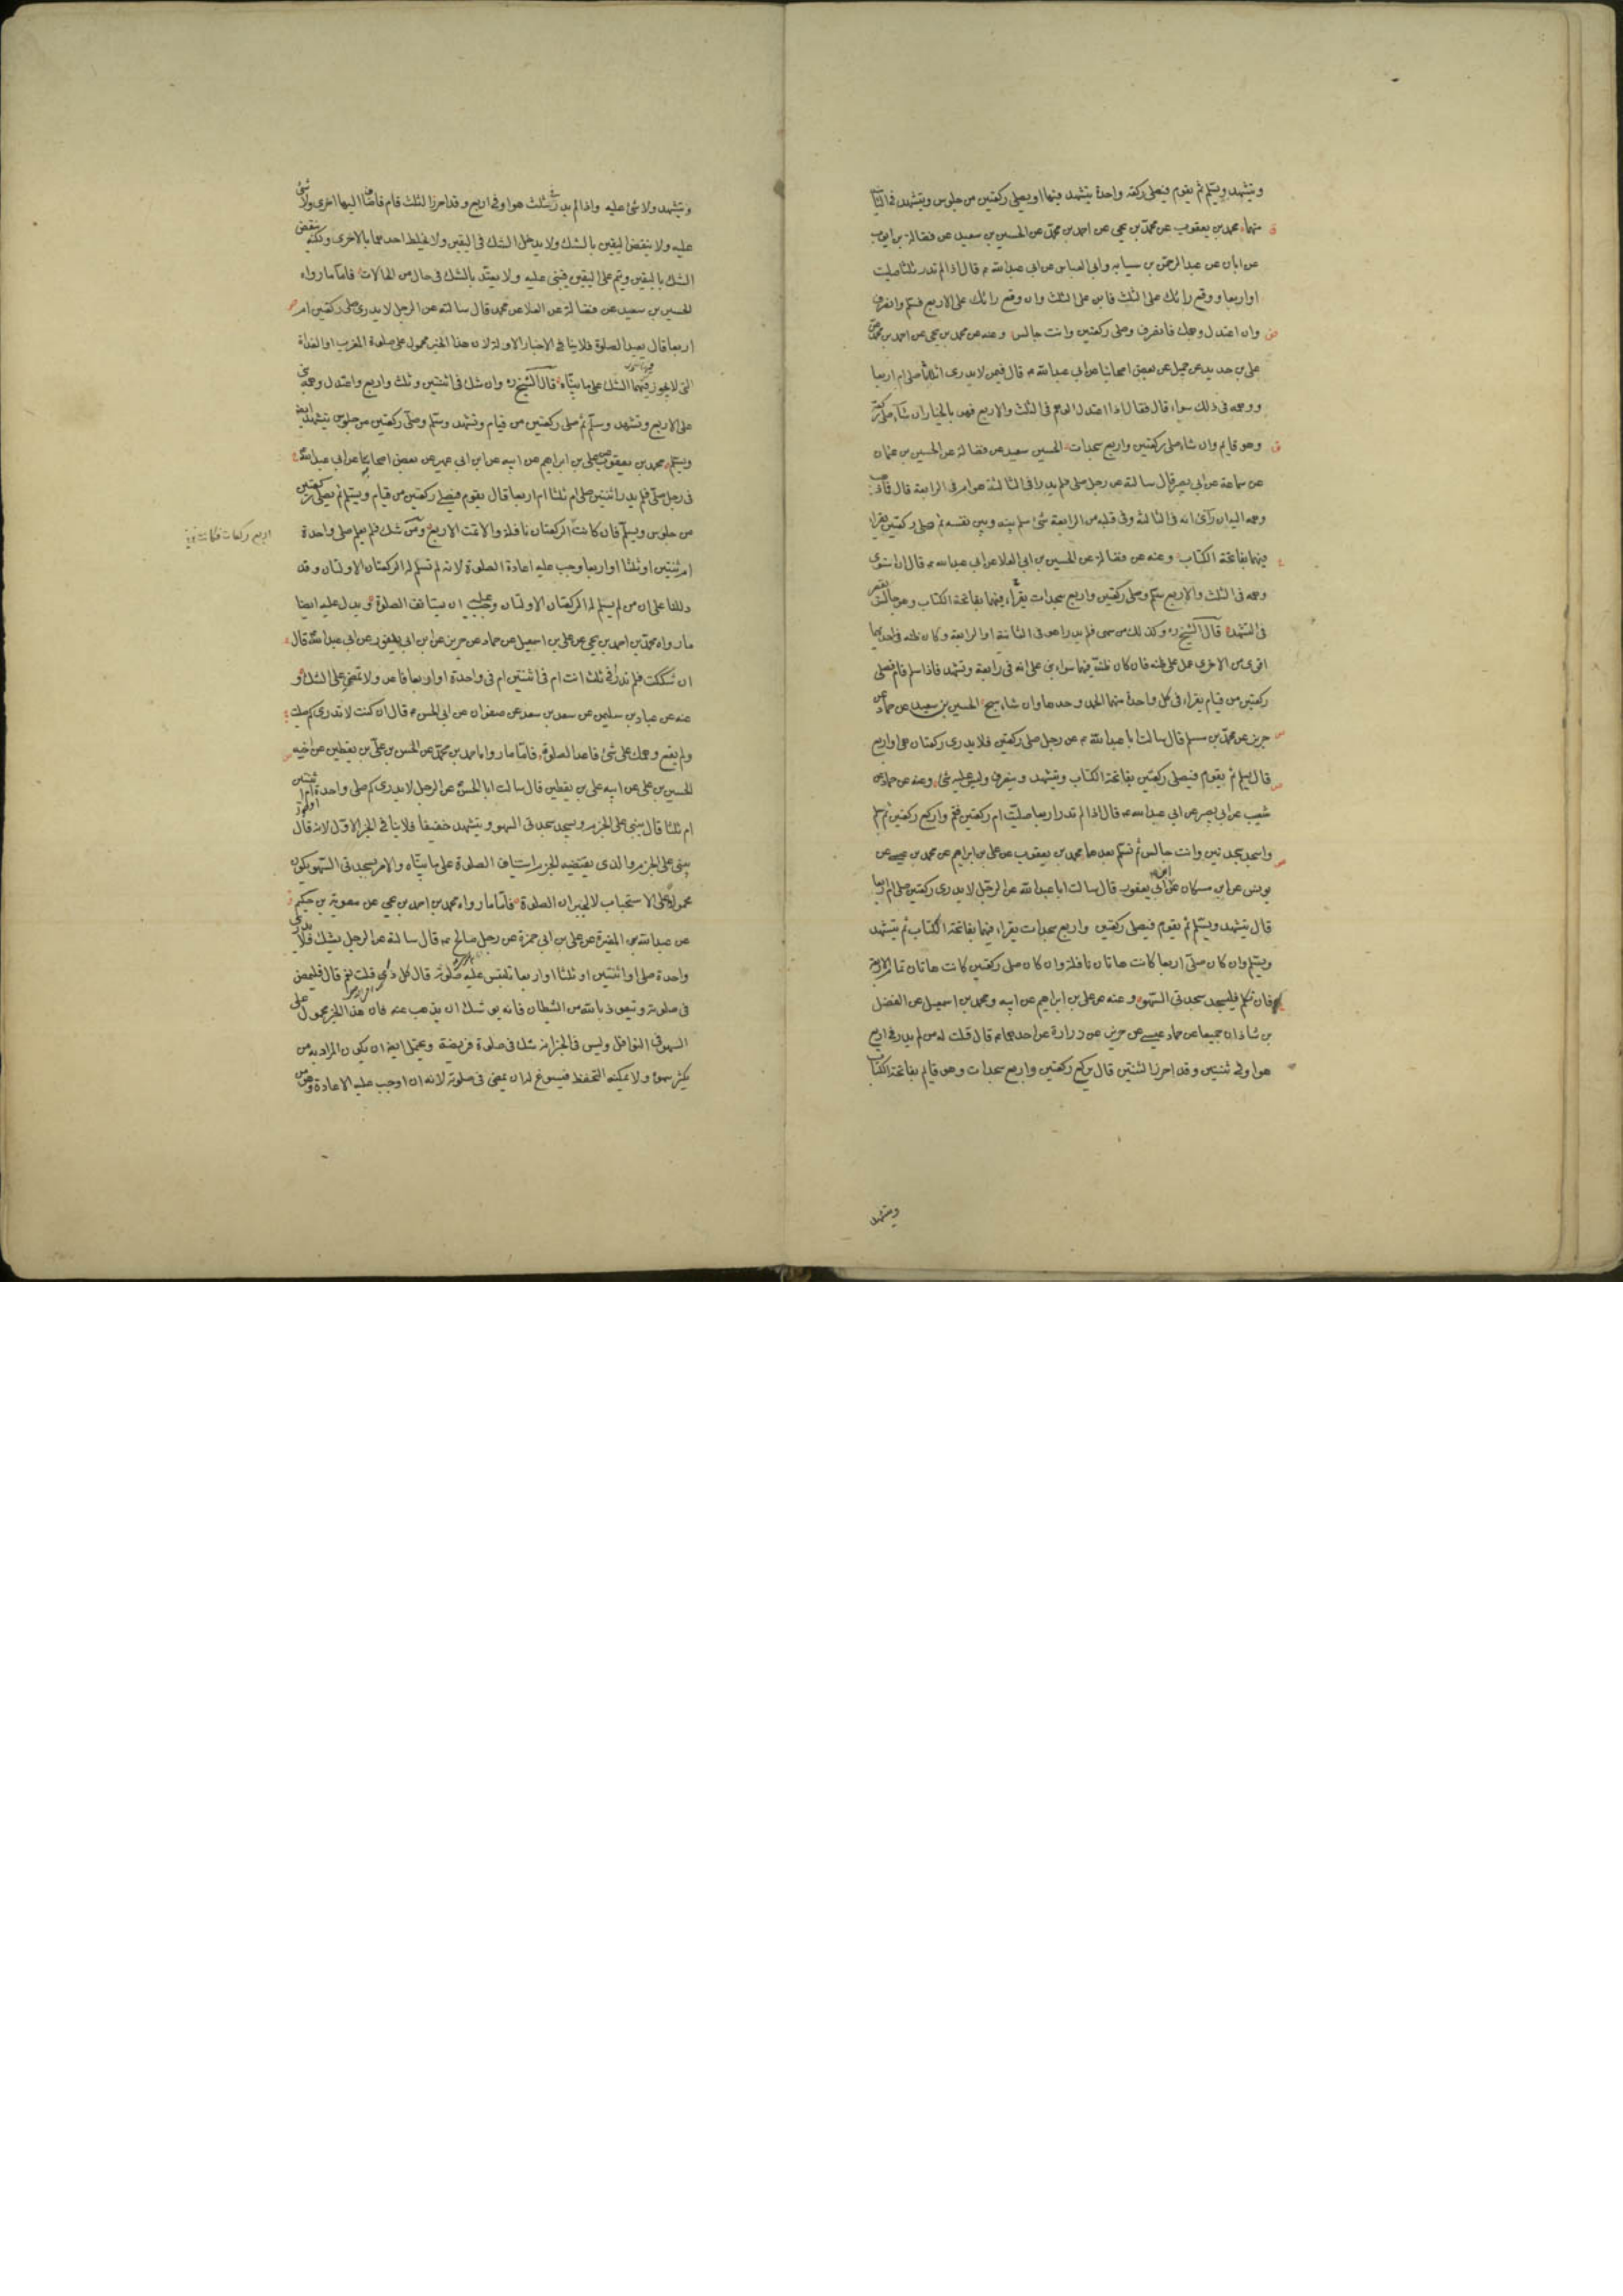 ويتشهد ويسلم ثم يقوم فيصلى ركعة واحدة يتشهد فيها او يصلى ركعتين من جلوس ويتشهد فى الثانية
منهما محمد بن يعقوب عن محمد بن يحيى عن احمد بن محمد عن الحسين بن سعيد عن فضالة بن ايوب
عن ابان عن عبد الرحمن بن سيابه وابى العباس عن ابى عبد الله ع قال اذا لم تدر ثلثا صليت
او اربعا ووقع رائك على الثلث فابن على الثلث وان وقع رائك على الاربع فسلم وانصرف
وان اعتدل وهمك فانصرف وصلى ركعتين وانت جالس وعنه عن محمد بن يحيى عن احمد بن محمد عن
على بن حديد عن جميل عن بعض اصحابنا عن ابى عبد الله ع قال فيمن لا يدرى اثلاثا صلى ام اربعا
ووهمه فى ذلك سواء قال فقال اذا اعتدل الوهم فى الثلث والاربع فهو بالخيار ان شاء صلى ركعة
وهو قايم وان شاء صلى ركعتين واربع سجدات الحسين سعيد عن فضالة عن الحسين بن عثمان
عن سماعة عن ابى بصير قال سالته عن رجل صلى فلم يدر افى الثالثة هو ام فى الرابعة قال فما ذهب
وهمه اليه ان رآى انه فى الثالثة وفى قلبه من الرابعة شئ سلم بينه وبين نفسه ثم صلى ركعتين يقراء
فيهما بفاتحة الكتاب وعنه عن فضالة عن الحسين بن ابى العلا عن ابى عبد الله ع قال ان استوى
وهمه فى الثلث والاربع سلم وصلى ركعتين واربع سجدات يقراء فيهما بفاتحة الكتاب وهو جالس يقصر
فى التشهد قال الشيخ ره وكذلك من سهى فلم يدر اهو فى الثانية او الرابعة وكان ظنه فى احديهما
اقوى من الاخرى عمل على ظنه فان كان ظنه فيهما سواء بنى على انه فى رابعة وتشهد فاذا سلم قام فصلى
ركعتين من قيام يقراء فى كل واحدة منهما الحمد وحدها وان شاء سبح الحسين بن سعيد عن حماد عن
حريز عن محمد بن مسلم قال سالت ابا عبد الله ع عن رجل صلى ركعتين فلا يدرى ركعتان هى او اربع
قال يسلم ثم يقوم فيصلى ركعتين بفاتحة الكتاب ويتشهد وينصرف وليس عليه شئ وعنه عن حماد عن
شعيب عن ابى بصير عن ابى عبد الله ع قال اذا لم تدر اربعا صليت ام ركعتين فقم واركع ركعتين ثم سلم
واسجد سجدتين وانت جالس ثم تسلم بعدها محمد بن يعقوب عن على بن ابراهيم عن محمد بن عيسى عن
يونس عن ابن مسكان عن ابن ابى يعفور قال سالت ابا عبد الله عن الرجل لا يدرى ركعتين صلى ام اربعا
قال يتشهد ويسلم ثم يقوم فيصلى ركعتين واربع سجدات يقراء فيهما بفاتحة الكتاب ثم يتشهد
ويسلم وان كان صلى اربعا كانت هاتان نافلة وان كان صلى ركعتين كانت هاتان تمام الاربعة
فان تكلم فليسجد سجدتى السهو وعنه عن على بن ابراهيم عن ابيه ومحمد بن اسمعيل عن الفضل
بن شاذان جميعا عن حماد عيسى عن حريز عن زرارة عن احدهما ع قال قلت له من لم يدر فى اربع
هو او فى ثنتين وقد احرز الثنتين قال يركع ركعتين واربع سجدات وهو قايم بفاتحة الكتاب
ويتشهد
ويتشهد ولا شئ عليه واذا لم يدر فى ثلث هو او فى اربع وقد احرز الثلث قام فاضاف اليها اخرى ولا شئ
عليه ولا ينقض اليقين بالشك ولا يدخل الشك فى اليقين ولا يخلط احدهما بالاخرى ولكنه ينقض
الشك باليقين ويتم على اليقين فيبنى عليه ولا يعتد بالشك فى حال من الحالات فاما ما رواه
الحسين بن سعيد عن فضالة عن العلا عن محمد قال سالته عن الرجل لا يدرى صلى ركعتين ام
اربعا قال يعيد الصلوة فلا ينافى الاخبار الاولة لان هذا الخبر محمول على صلوة المغرب او الغداة
التى لا يجوز فيهما الشك على ما بيناه قال الشيخ ره وان شك فى اثنتين وثلث واربع واعتدل وهمه بنى
على الاربع وتشهد وسلم ثم صلى ركعتين من قيام وتشهد وسلم وصلى ركعتين من جلوس يتشهد ايضا
ويسلم محمد بن يعقوب عن على بن ابراهيم عن ابيه عن ابن ابى عمير عن بعض اصحابنا عن ابى عبد الله ع
فى رجل صلى فلم يدر اثنتين صلى ام ثلثا ام اربعا قال يقوم فيصلى ركعتين من قيام ويسلم ثم يصلى ركعتين
من جلوس ويسلم فان كانت الركعتان نافلة والا تمت الاربع ومن شك فلم يعلم صلى واحدة
ام ثنتين او ثلثا او اربعا وجب عليه اعادة الصلوة لانه لم تسلم له الركعتان الاولتان وقد
دللنا على ان من لم يسلم له الركعتان الاولتان وجب عليه ان يستانف الصلوة ويدل عليه ايضا
ما رواه محمد بن احمد بن يحيى عن على بن اسمعيل عن حماد عن حريز عن ابن ابى يعفور عن ابى عبد الله قال
ان شككت فلم تدر افى ثلث انت ام فى اثنتين ام فى واحدة او اربع فاعد ولا تمض على الشك و
عنه عن عباد بن سليمن عن سعد بن سعد عن صفوان عن ابى الحسن ع قال ان كنت لا تدرى كم صليت
ولم يقع وهمك على شئ فاعد الصلوة فاما ما رواه احمد بن محمد عن الحسن بن على بن يقطين عن اخيه
الحسين بن على عن ابيه على بن يقطين قال سالت ابا الحسن ع عن الرجل لا يدرى كم صلى واحدة ام ثنتين
ام ثلثا قال يبنى على الجزم ويسجد سجدتى السهو ويتشهد خفيفا فلا ينافى الخبر الاول لانه قال
يبنى على الجزم والذى يقتضيه الجزم استيناف الصلوة على ما بيناه والامر بسجدتى السهو يكون
محمولا على الاستحباب لا لجبران الصلوة فاما ما رواه محمد بن احمد بن يحيى عن معوية بن حكيم
عن عبد الله بن المغيرة عن على بن ابى حمزة عن رجل صالح ع قال سالته عن الرجل يشك فلا يدرى
واحدة صلى او اثنتين او ثلثا او اربعا تلتبس عليه صلوته قال كل ذى قلت نعم قال فليمض
فى صلوته وتعوذ بالله من الشيطان فانه يوشك ان يذهب عنه فان هذا الخبر محمول على
السهو فى النوافل وليس فى الخبر انه شك فى صلوة فريضة ويحتمل ايضا ان يكون المراد به من
يكثر سهوه ولا يمكنه التحفظ فيسوغ له ان يمضى فى صلوته لانه ان اوجب عليه الاعادة وهو من